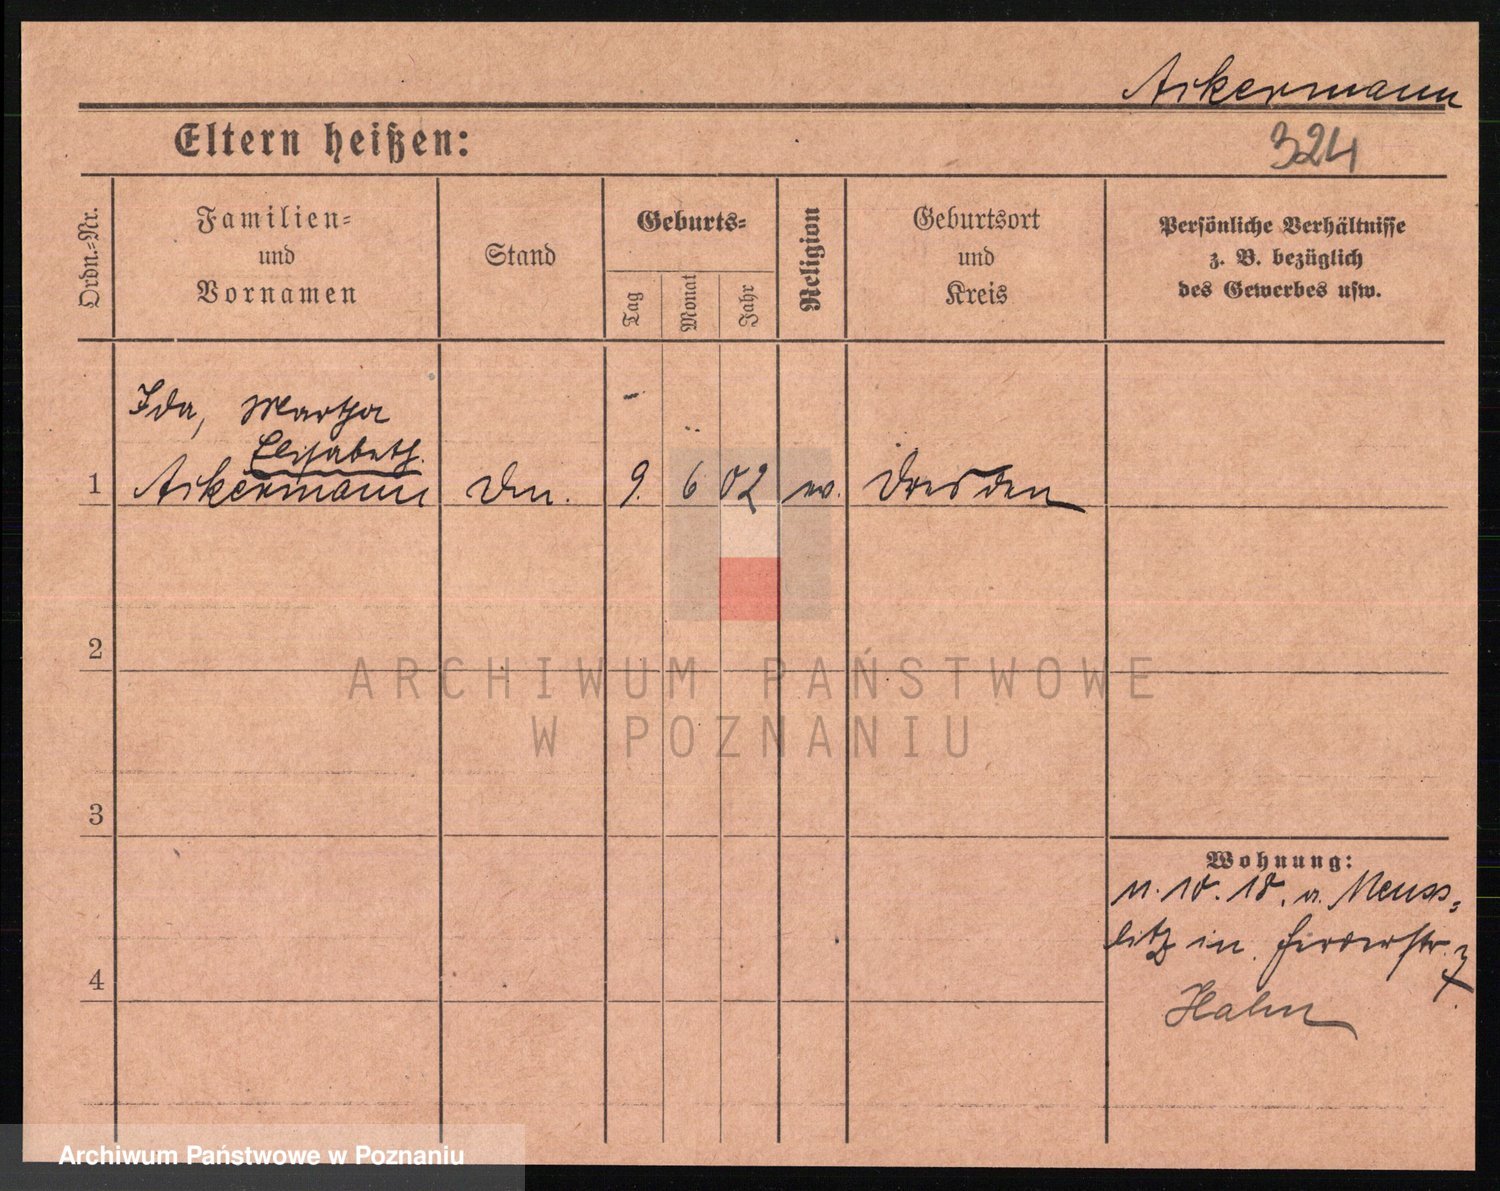 Ackermann
Eltern heißen:
324
Ordn.-Nr.
Familien-
und
Vornamen
Stand
Geburts-
Tag
Monat
Jahr
Religion
Geburtsort
und
Kreis
Persönliche Verhältnisse
z. B. bezüglich
des Gewerbes usw.
Ida, Martha
Elisabeth.
1 Ackermann 9. 6 02 ev. Dresden
2
ARCHIWUM PAŃSTWOWE
W POZNANIU
3
Wohnung:
11.10.18.
4
Hahn
Archiwum Państwowe w Poznaniu